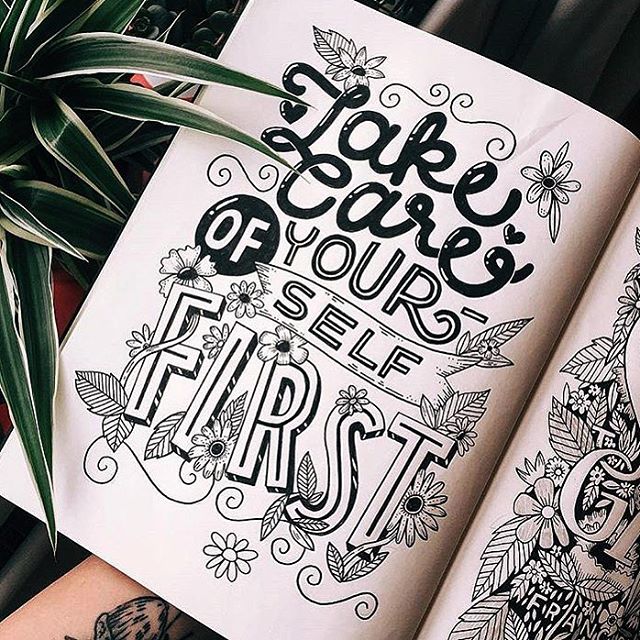 Take
Care
OF YOUR-
SELF
FIRST